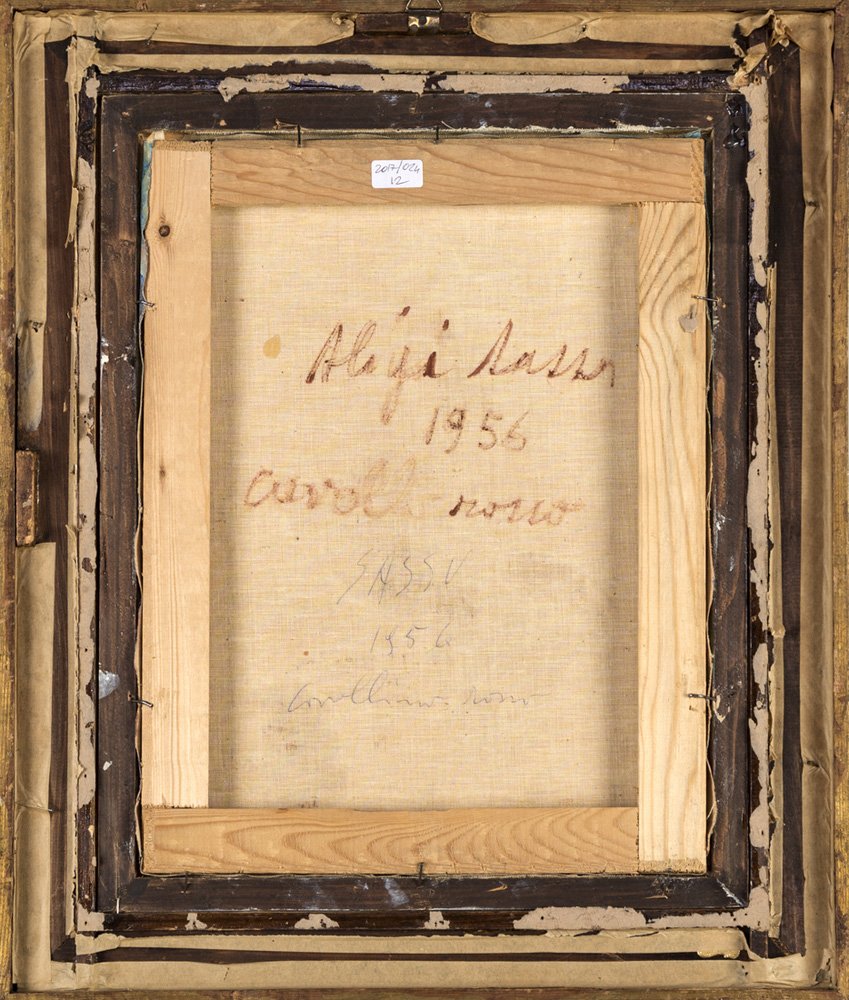 2017/024
12
Aligi Sassu
1956
cavallo rosso
SASSU
1956
Cavallino rosso